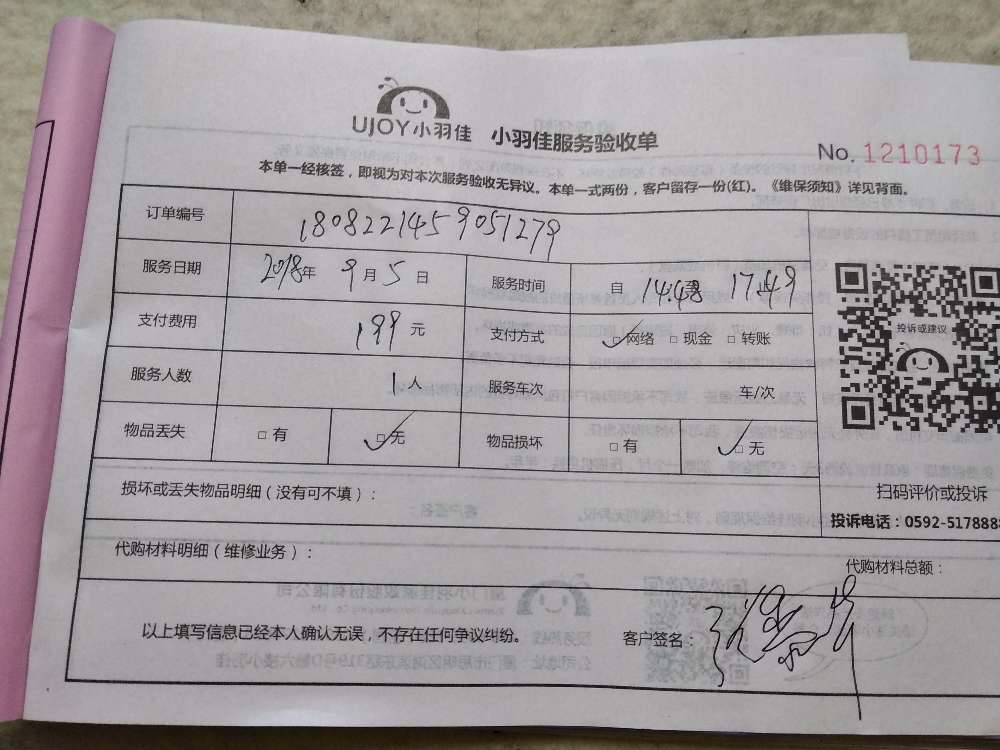 UJOY小羽佳 小羽佳服务验收单
No. 1210173
本单一经核签，即视为对本次服务验收无异议。本单一式两份，客户留存一份(红)。《维保须知》详见背面。
订单编号 1808221459051279
服务日期 2018年 9月5日 服务时间 自 14.48 至 17.49 止
支付费用 199元 支付方式 □网络 □现金 □转账
服务人数 1人 服务车次 车/次
物品丢失 □有 □无 物品损坏 □有 □无
投诉或建议
扫码评价或投诉
投诉电话：0592-5178888
损坏或丢失物品明细（没有可不填）：
代购材料明细（维修业务）：
代购材料总额：
以上填写信息已经本人确认无误，不存在任何争议纠纷。 客户签名：